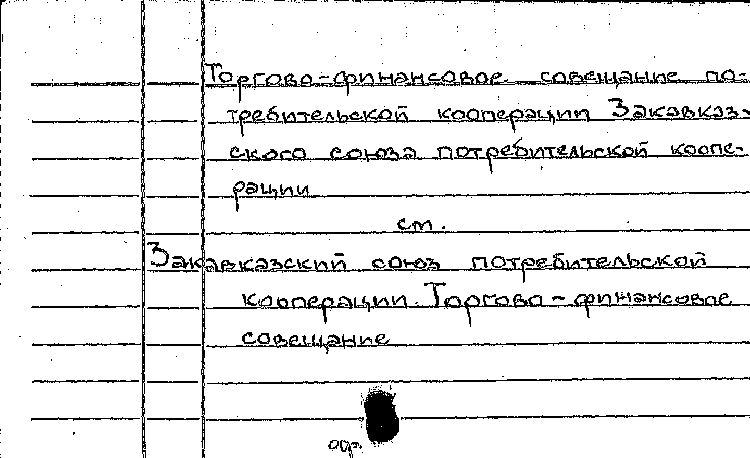 Торгово-финансовое совещание по-
требительской кооперации Закавказ-
ского союза потребительской коопе-
рации
см.
Закавказский союз потребительской
кооперации. Торгово-финансовое
совещание